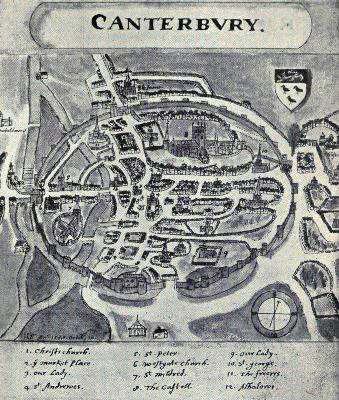 CANTERBURY.
1. Christ church.
2. ye market Place
3. our Lady.
4. st. Andrewes.
5. st. Peter
6. Westgate Church.
7. st. mildred.
8. The Castell.
9. our Lady.
10. st. george.
11. The frieres
12. Alhalows.